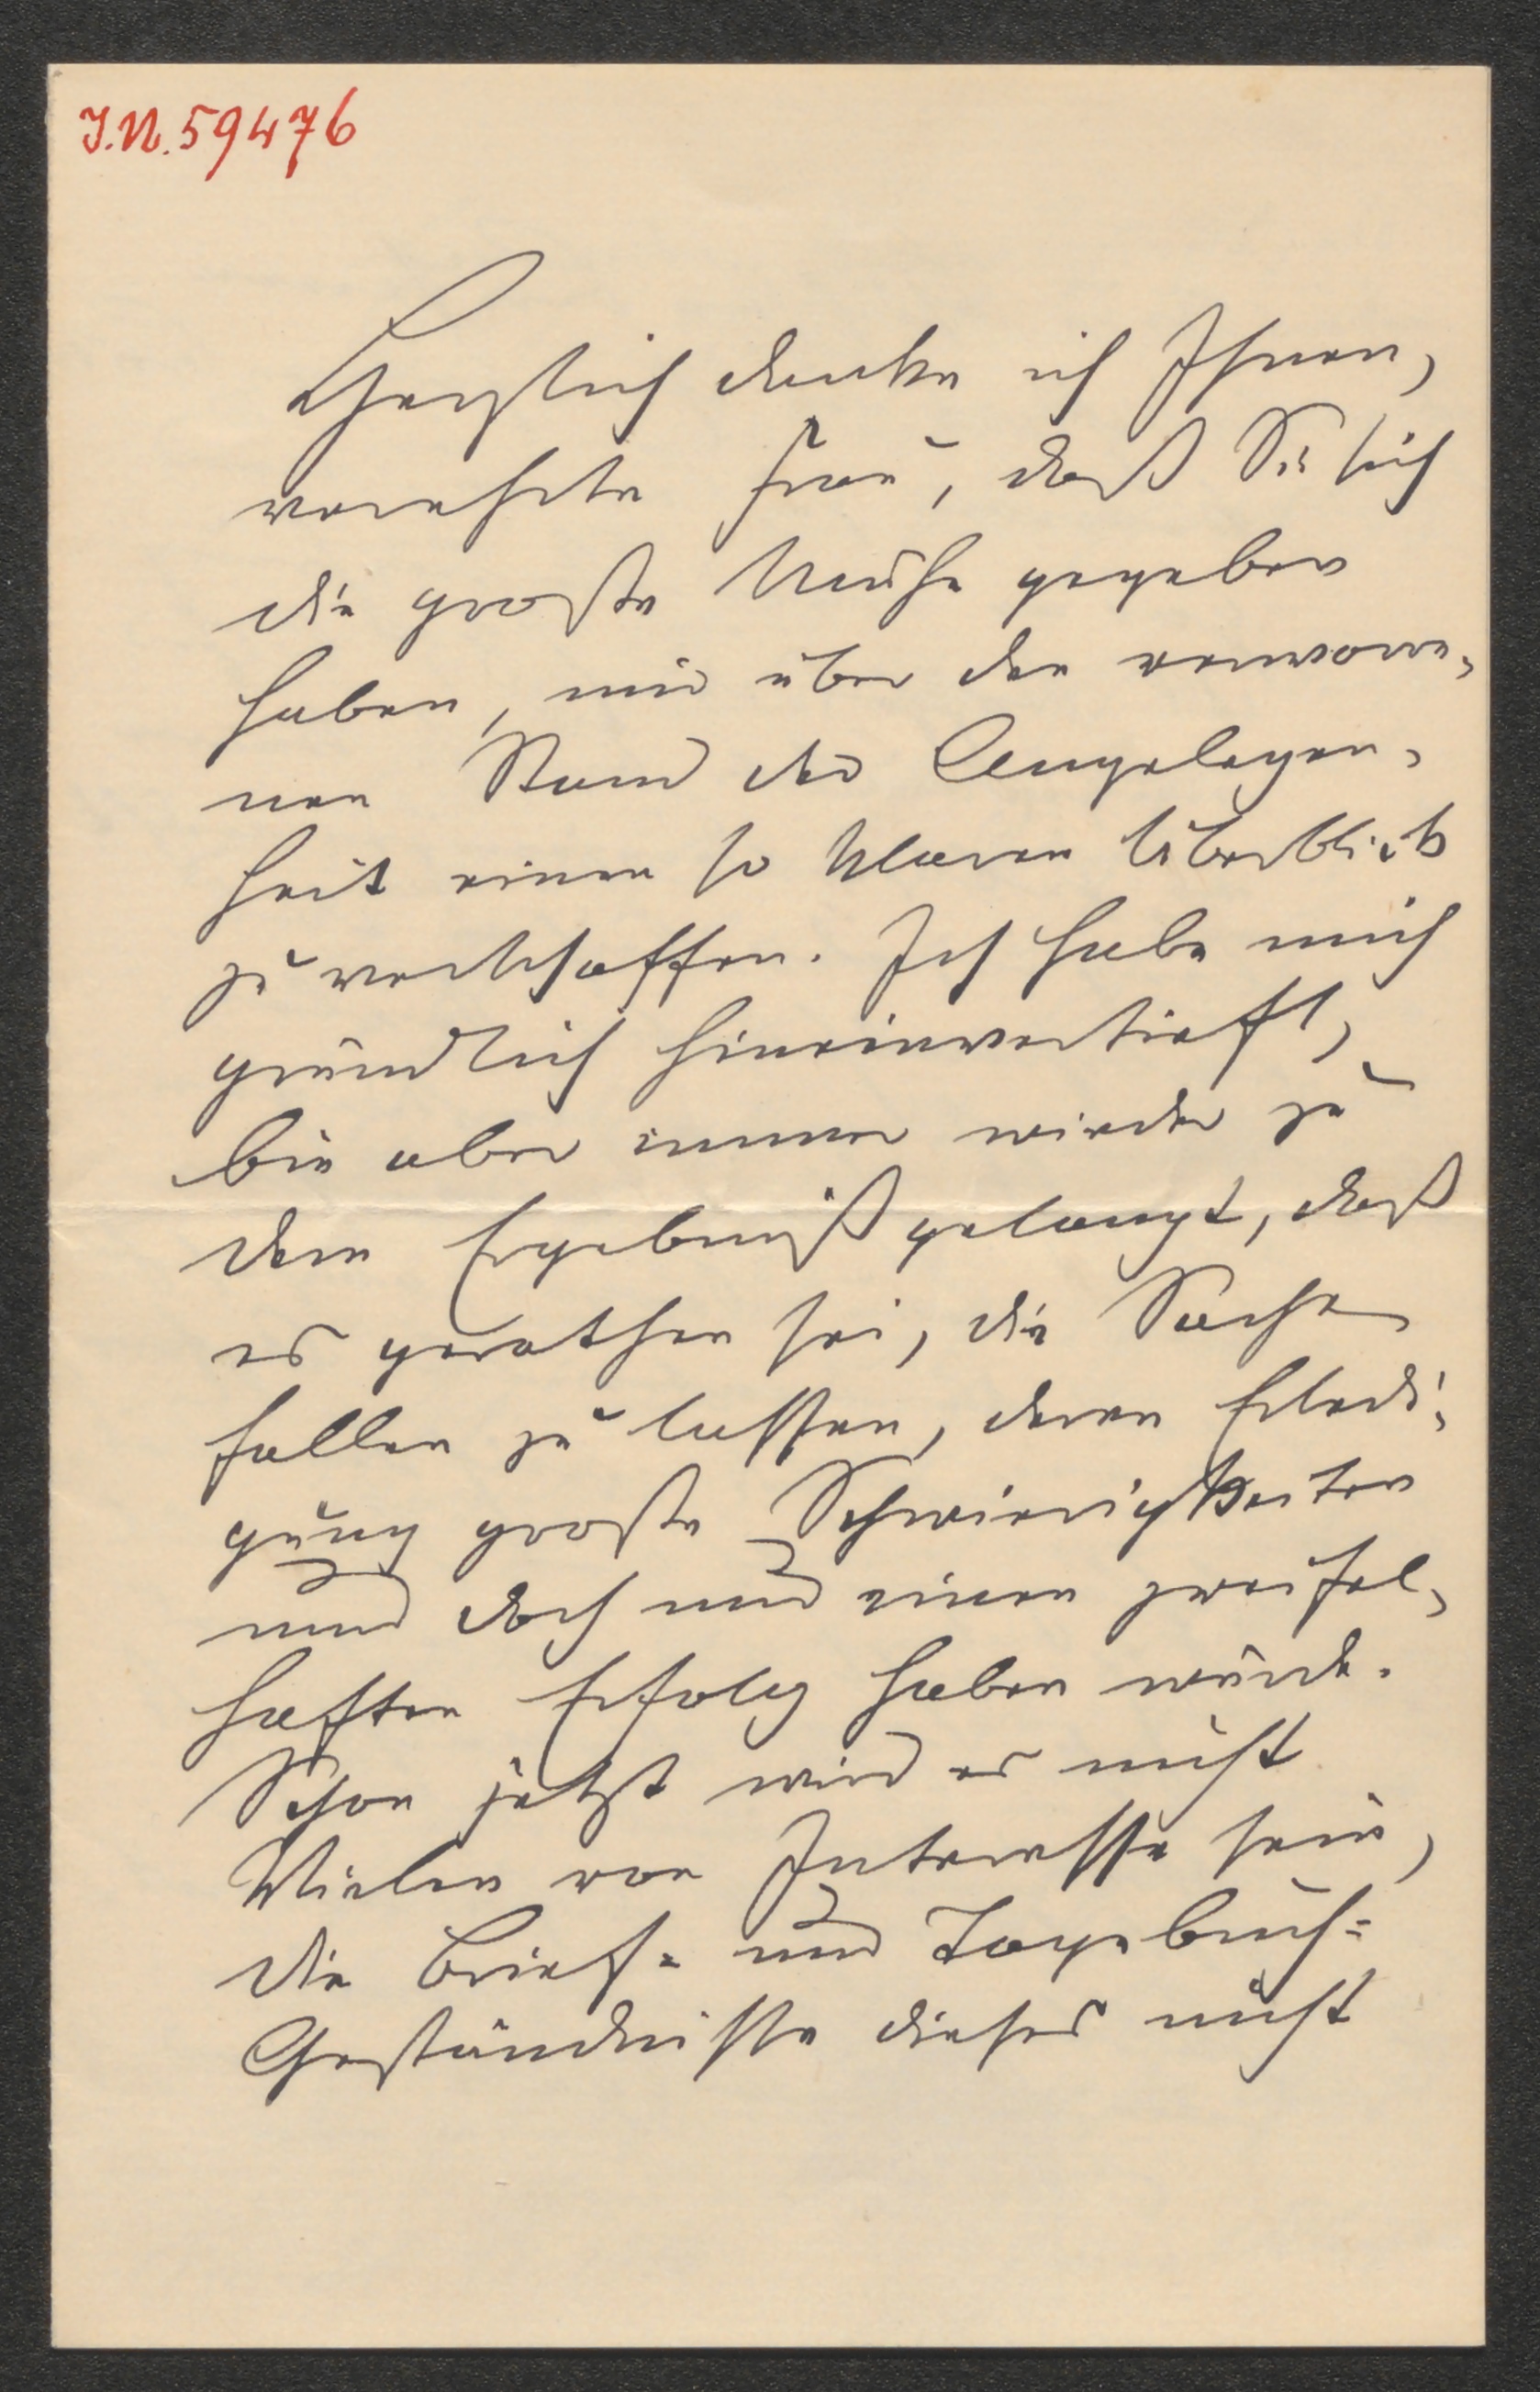 I.N. 59476
Herzlich danke ich Ihnen,
verehrte Frau, daß Sie sich
die große Mühe gegeben
haben, mir über den verworre-
nen Stand der Angelegen-
heit einen so klaren Überblick
zu verschaffen. Ich habe mich
gründlich hineinvertieft,
bin aber immer wieder zu
dem Ergebniß gelangt, daß
es gerathen sei, die Sache
fallen zu lassen, deren Erledi-
gung große Schwierigkeiten
und doch nur einen zweifel-
haften Erfolg haben würde.
Schon jetzt wird es nicht
Vielen von Interesse sein,
die Brief- und Tagebuch-
Geständnisse dieses nicht